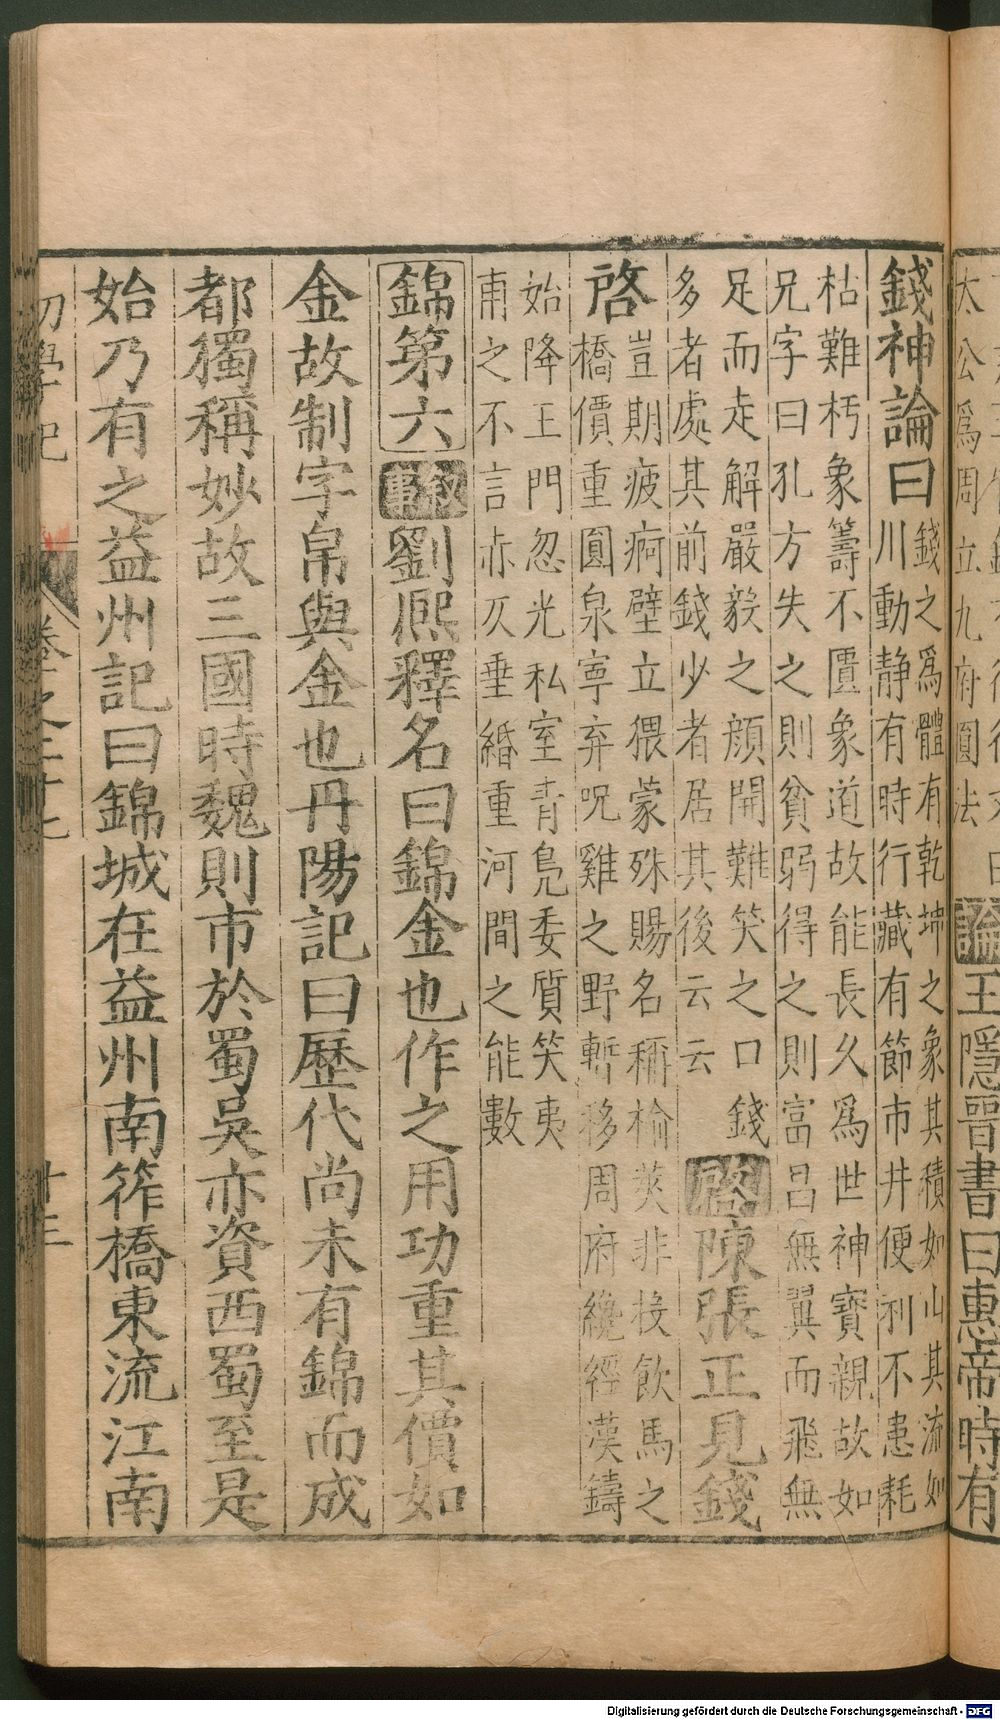 論王隱晉書曰惠帝時有
太公爲周立九府圜法
錢神論曰錢之爲體有乾坤之象其積如山其流如
川動靜有時行藏有節市井便利不患耗
枯難朽象籌不匱象道故能長久爲世神寶親故如
兄字曰孔方失之則貧弱得之則富昌無翼而飛無
足而走解嚴毅之顔開難笑之口錢
多者處其前錢少者居其後云云
啓陳張正見錢
啓豈期疲痾壁立猥蒙殊賜名稱榆莢非投飲馬之
橋價重圓泉寧弃呪雞之野暫移周府纔經漢鑄
始降王門忽光私室青鳧委質笑夷
甫之不言赤仄垂緡重河間之能數
錦第六 敘事劉熈釋名曰錦金也作之用功重其價如
金故制字帛與金也丹陽記曰歷代尚未有錦而成
都獨稱妙故三國時魏則市於蜀吳亦資西蜀至是
始乃有之益州記曰錦城在益州南筰橋東流江南
初學記 卷之二十七 十三
Digitalisierung gefördert durch die Deutsche Forschungsgemeinschaft - DFG